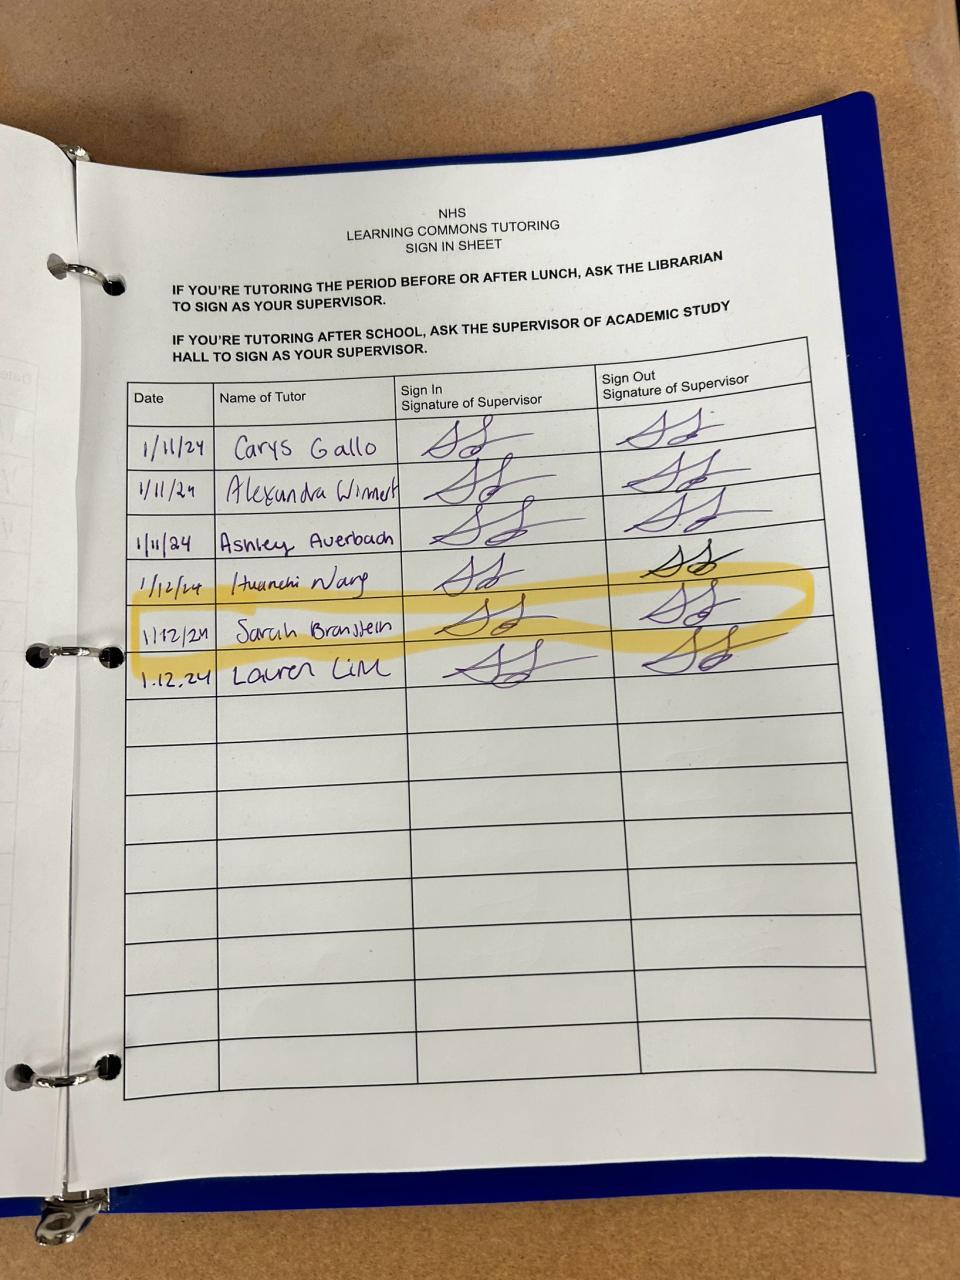 NHS
LEARNING COMMONS TUTORING
SIGN IN SHEET
IF YOU'RE TUTORING THE PERIOD BEFORE OR AFTER LUNCH, ASK THE LIBRARIAN
TO SIGN AS YOUR SUPERVISOR.
IF YOU'RE TUTORING AFTER SCHOOL, ASK THE SUPERVISOR OF ACADEMIC STUDY
HALL TO SIGN AS YOUR SUPERVISOR.
Date Name of Tutor Sign In Signature of Supervisor Sign Out Signature of Supervisor
1/11/24 Carys Gallo
1/11/24 Alexandra
1/11/24 Ashley Averbach
1/12/24 Huanchi Wang
1/12/24 Sarah Branstein
1.12.24 Lauren Lim